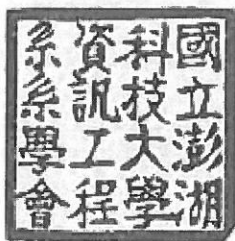 國立澎湖
科技大學
資訊工程
系系學會